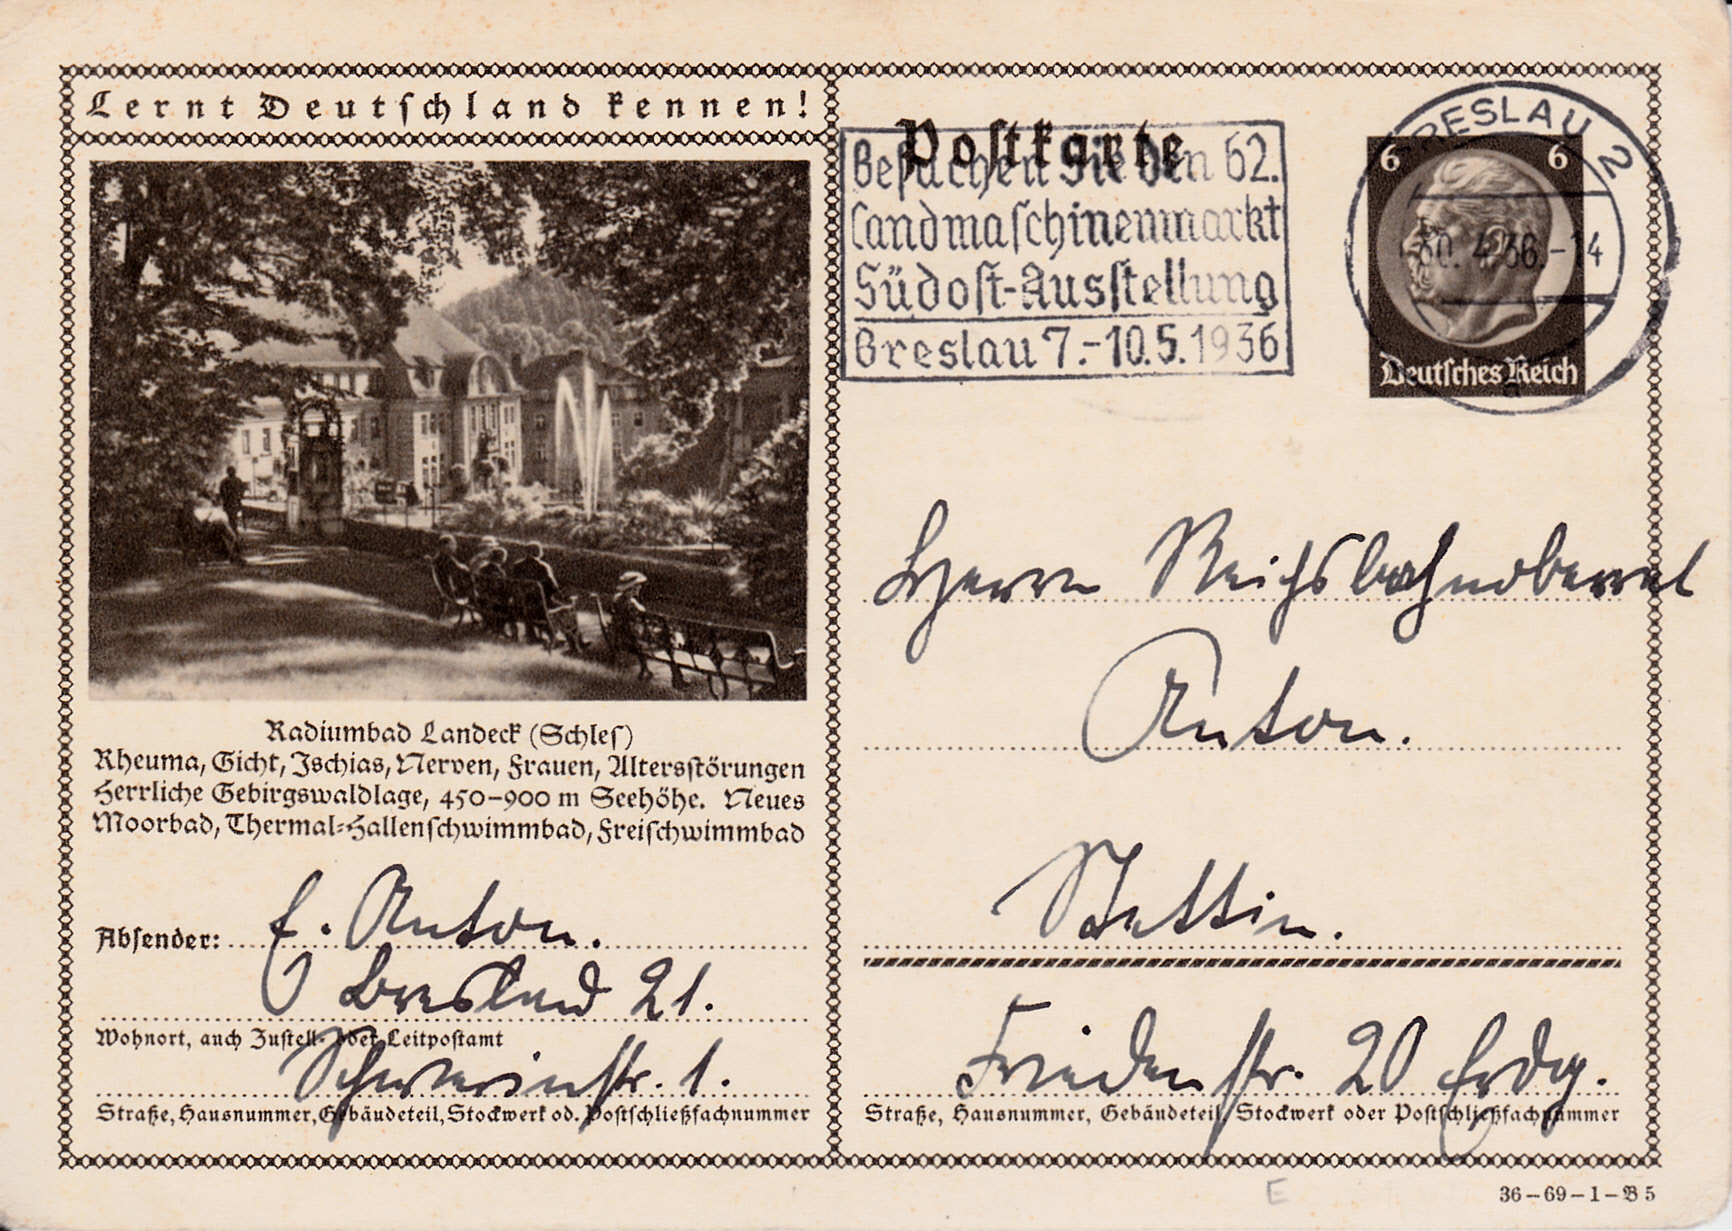 Lernt Deutschland kennen!
Radiumbad Landeck (Schles)
Rheuma, Gicht, Ischias, Nerven, Frauen, Altersstörungen
Herrliche Gebirgswaldlage, 450–900 m Seehöhe. Neues
Moorbad, Thermal-Hallenschwimmbad, Freischwimmbad
Absender: E. Anton.
Breslau 21.
Wohnort, auch Zustell- oder Leitpostamt
Schwerinstr. 1.
Straße, Hausnummer, Gebäudeteil, Stockwerk od. Postschließfachnummer
Postkarte
Besuchen Sie den 62.
Landmaschinenmarkt
Südost-Ausstellung
Breslau 7.-10.5.1936
BRESLAU 2
30.4.36.-14
6 6
Deutsches Reich
Herrn Reichsbahnoberrat
Anton.
Stettin.
Friedenstr. 20 Erdg.
Straße, Hausnummer, Gebäudeteil, Stockwerk oder Postschließfachnummer
36–69–1–B 5
E